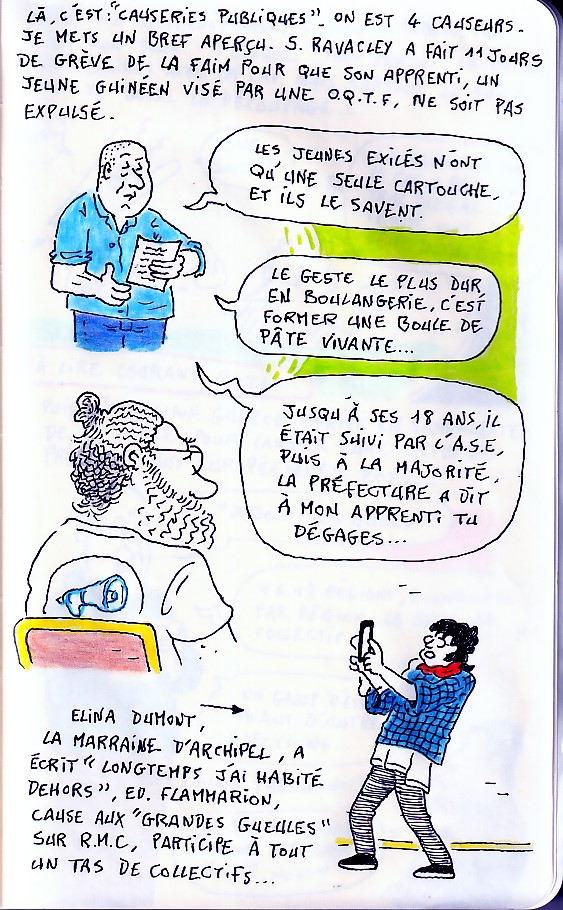 LÀ, C'EST : "CAUSERIES PUBLIQUES". ON EST 4 CAUSEURS.
JE METS UN BREF APERÇU. S. RAVACLEY A FAIT 11 JOURS
DE GRÈVE DE LA FAIM POUR QUE SON APPRENTI, UN
JEUNE GUINÉEN VISÉ PAR UNE O.Q.T.F, NE SOIT PAS
EXPULSÉ.
LES JEUNES EXILÉS N'ONT
QU'UNE SEULE CARTOUCHE,
ET ILS LE SAVENT.
LE GESTE LE PLUS DUR
EN BOULANGERIE, C'EST
FORMER UNE BOULE DE
PÂTE VIVANTE...
JUSQU'À SES 18 ANS, IL
ÉTAIT SUIVI PAR L'A.S.E,
PUIS À LA MAJORITÉ,
LA PRÉFECTURE A DIT
À MON APPRENTI TU
DÉGAGES...
ELINA DUMONT,
LA MARRAINE D'ARCHIPEL, A
ÉCRIT "LONGTEMPS J'AI HABITÉ
DEHORS", ED. FLAMMARION,
CAUSE AUX "GRANDES GUEULES"
SUR R.M.C, PARTICIPE À TOUT
UN TAS DE COLLECTIFS...